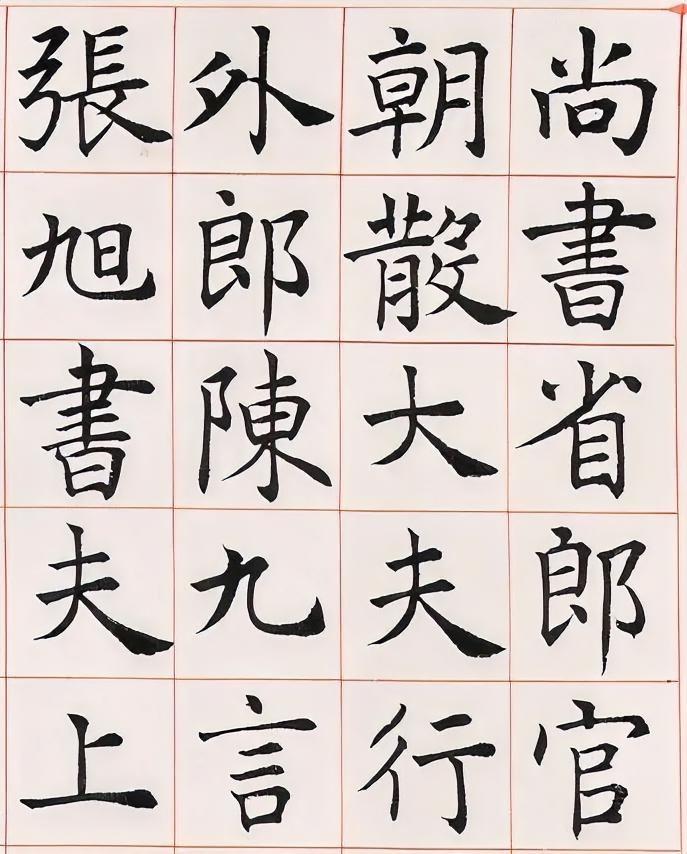 尚書省郎官
朝散大夫行
外郎陳九言
張旭書夫上